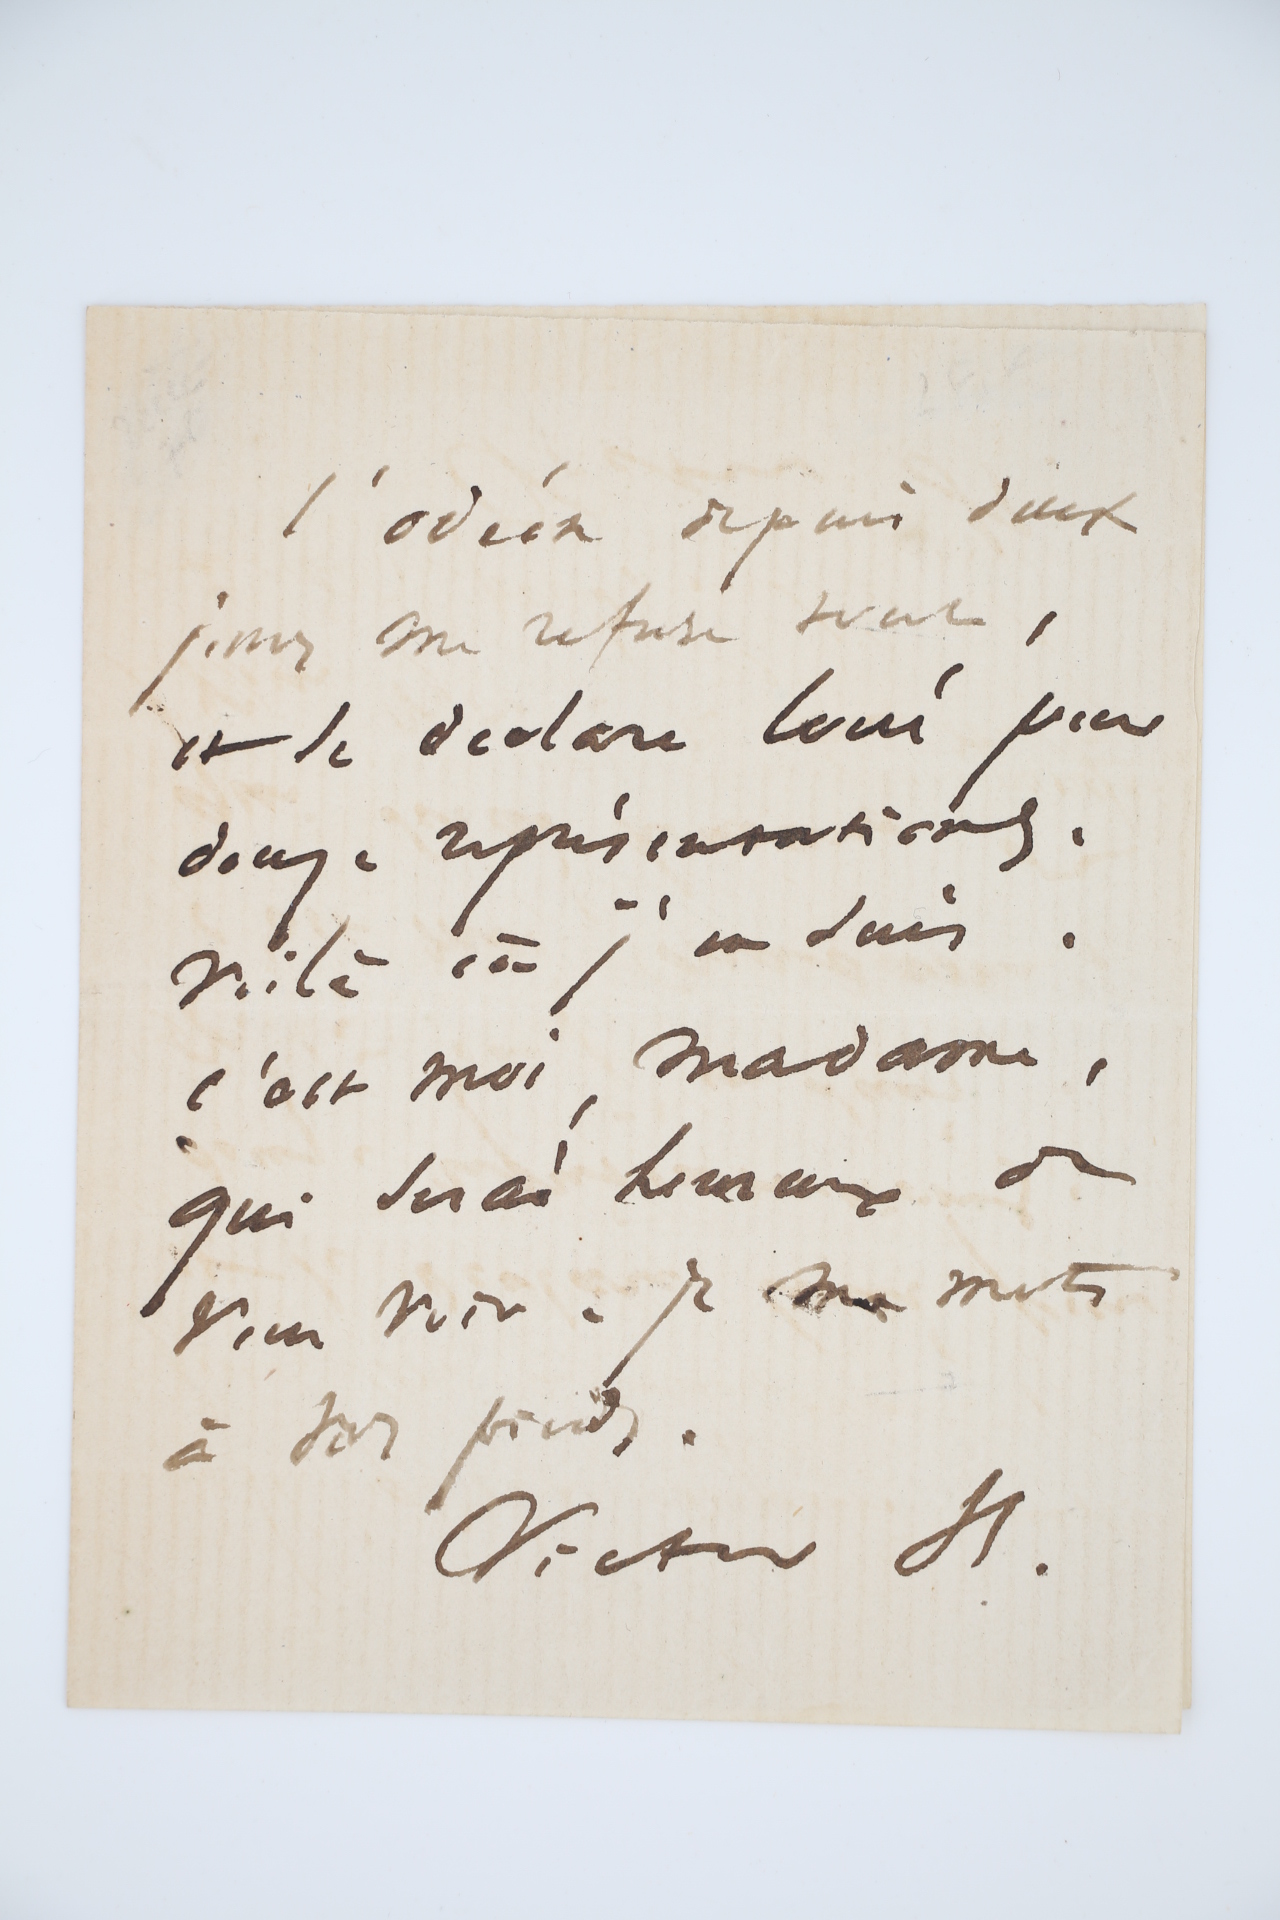 l'odéon depuis deux
jours me refuse tout,
et se déclare loué pour
douze représentations.
Voilà où j'en suis.
c'est moi, madame,
qui serai heureux de
vous voir. je me mets
à vos pieds.
Victor H.